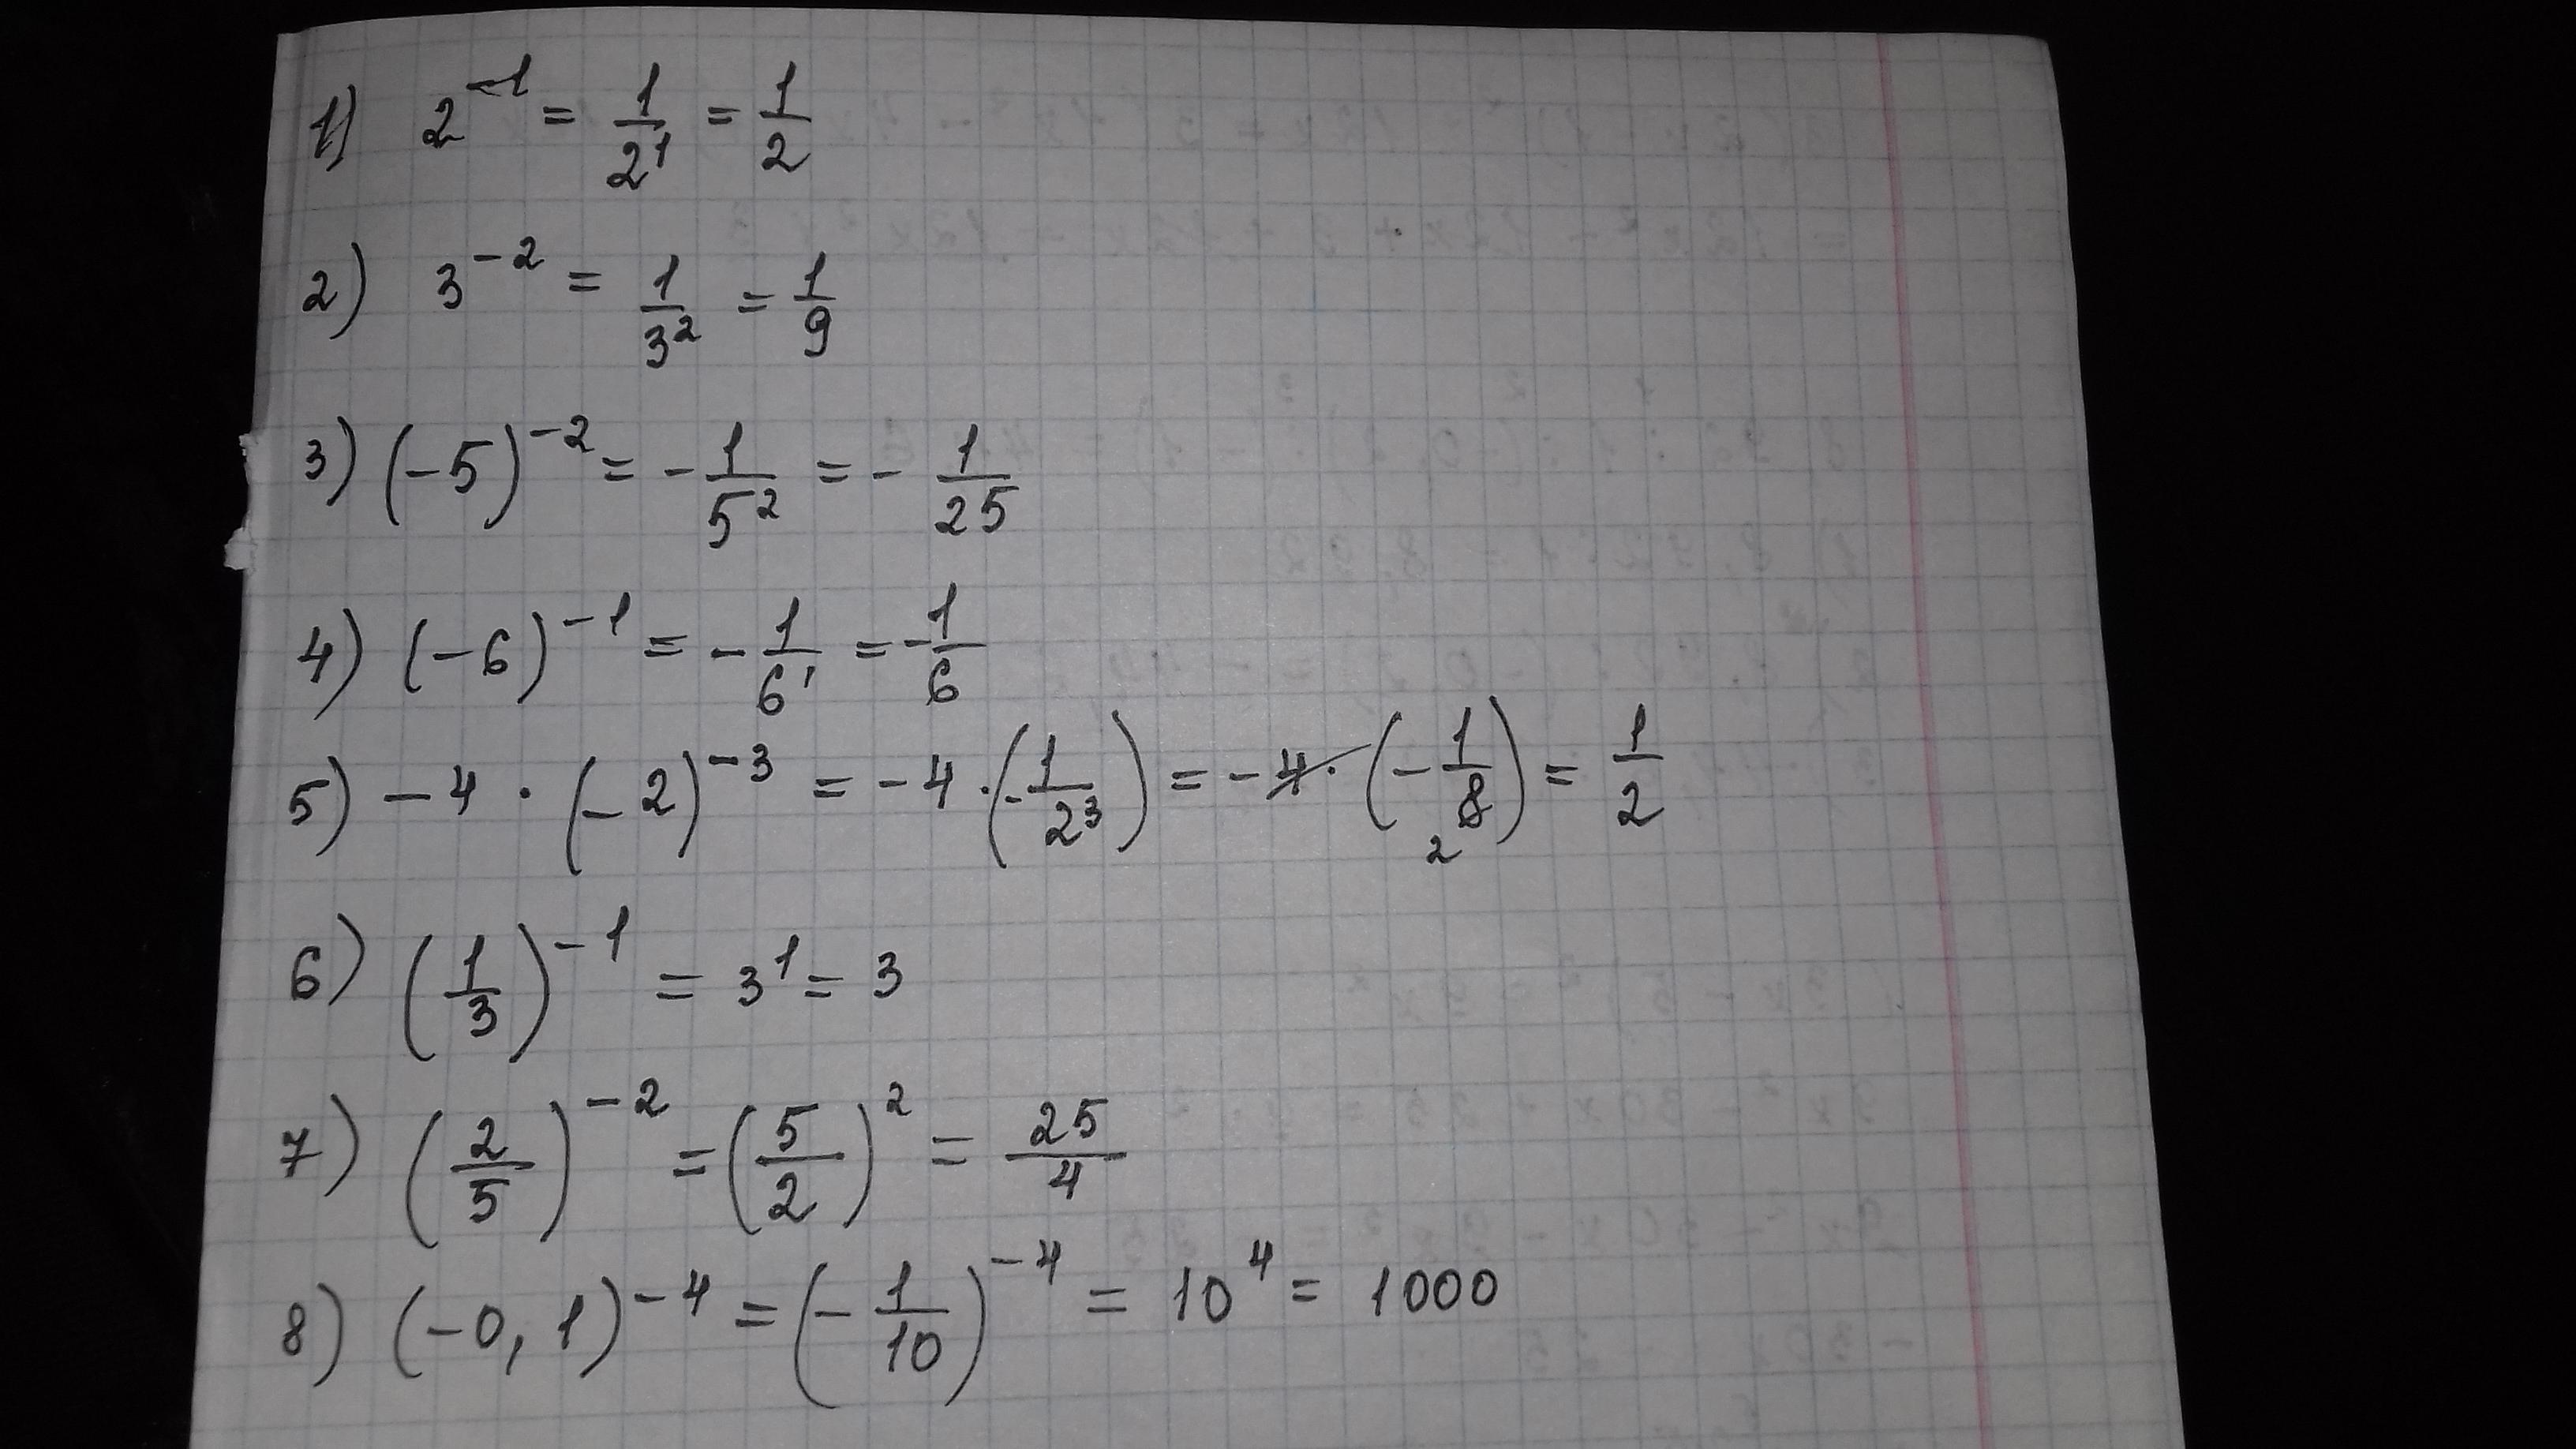 1) 2^-1 = 1/2^1 = 1/2
2) 3^-2 = 1/3^2 = 1/9
3) (-5)^-2 = - 1/5^2 = - 1/25
4) (-6)^-1 = - 1/6^1 = - 1/6
5) -4 · (-2)^-3 = -4 · (- 1/2^3) = -4 · (- 1/8) 2 = 1/2
6) (1/3)^-1 = 3^1 = 3
7) (2/5)^-2 = (5/2)^2 = 25/4
8) (-0,1)^-4 = (- 1/10)^-4 = 10^4 = 1000